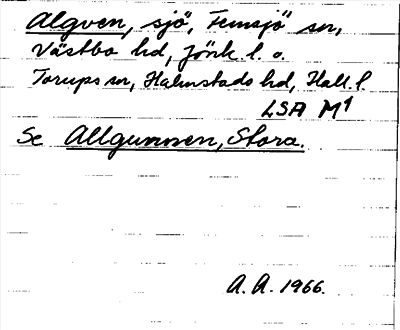 Algven, sjö, Femsjö sn,
Västbo hd, Jönk. l. o.
Torups sn, Halmstads hd, Hall. l.
LSA M1
Se Allgunnen, Stora.
A. A. 1966.